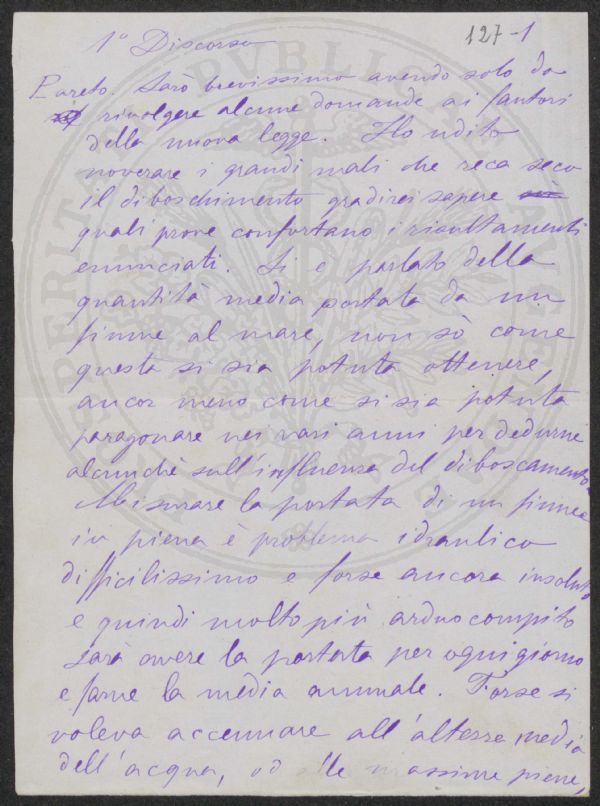 127-1
1° Discorso
Pareto. Sarò brevissimo avendo solo da
rivolgere alcune domande ai fautori
della nuova legge. Ho udito
noverare i grandi mali che reca seco
il diboschimento gradirei sapere
quali prove confortano i risultamenti
enunciati. Si è parlato della
quantità media portata da un
fiume al mare, non sò come
questa si sia potuta ottenere,
ancor meno come si sia potuta
paragonare nei vari anni per dedurne
alcunchè sull'influenza del diboscamento
Misurare la portata di un fiume
in piena è problema idraulico
difficilissimo e forse ancora insoluto
e quindi molto più arduo compito
sarà avere la portata per ogni giorno
e farne la media annuale. Forse si
voleva accennare all'altezza media
dell'acqua, od alle massime piene,
PROSPERITATI PVBLICAE AVGENDAE